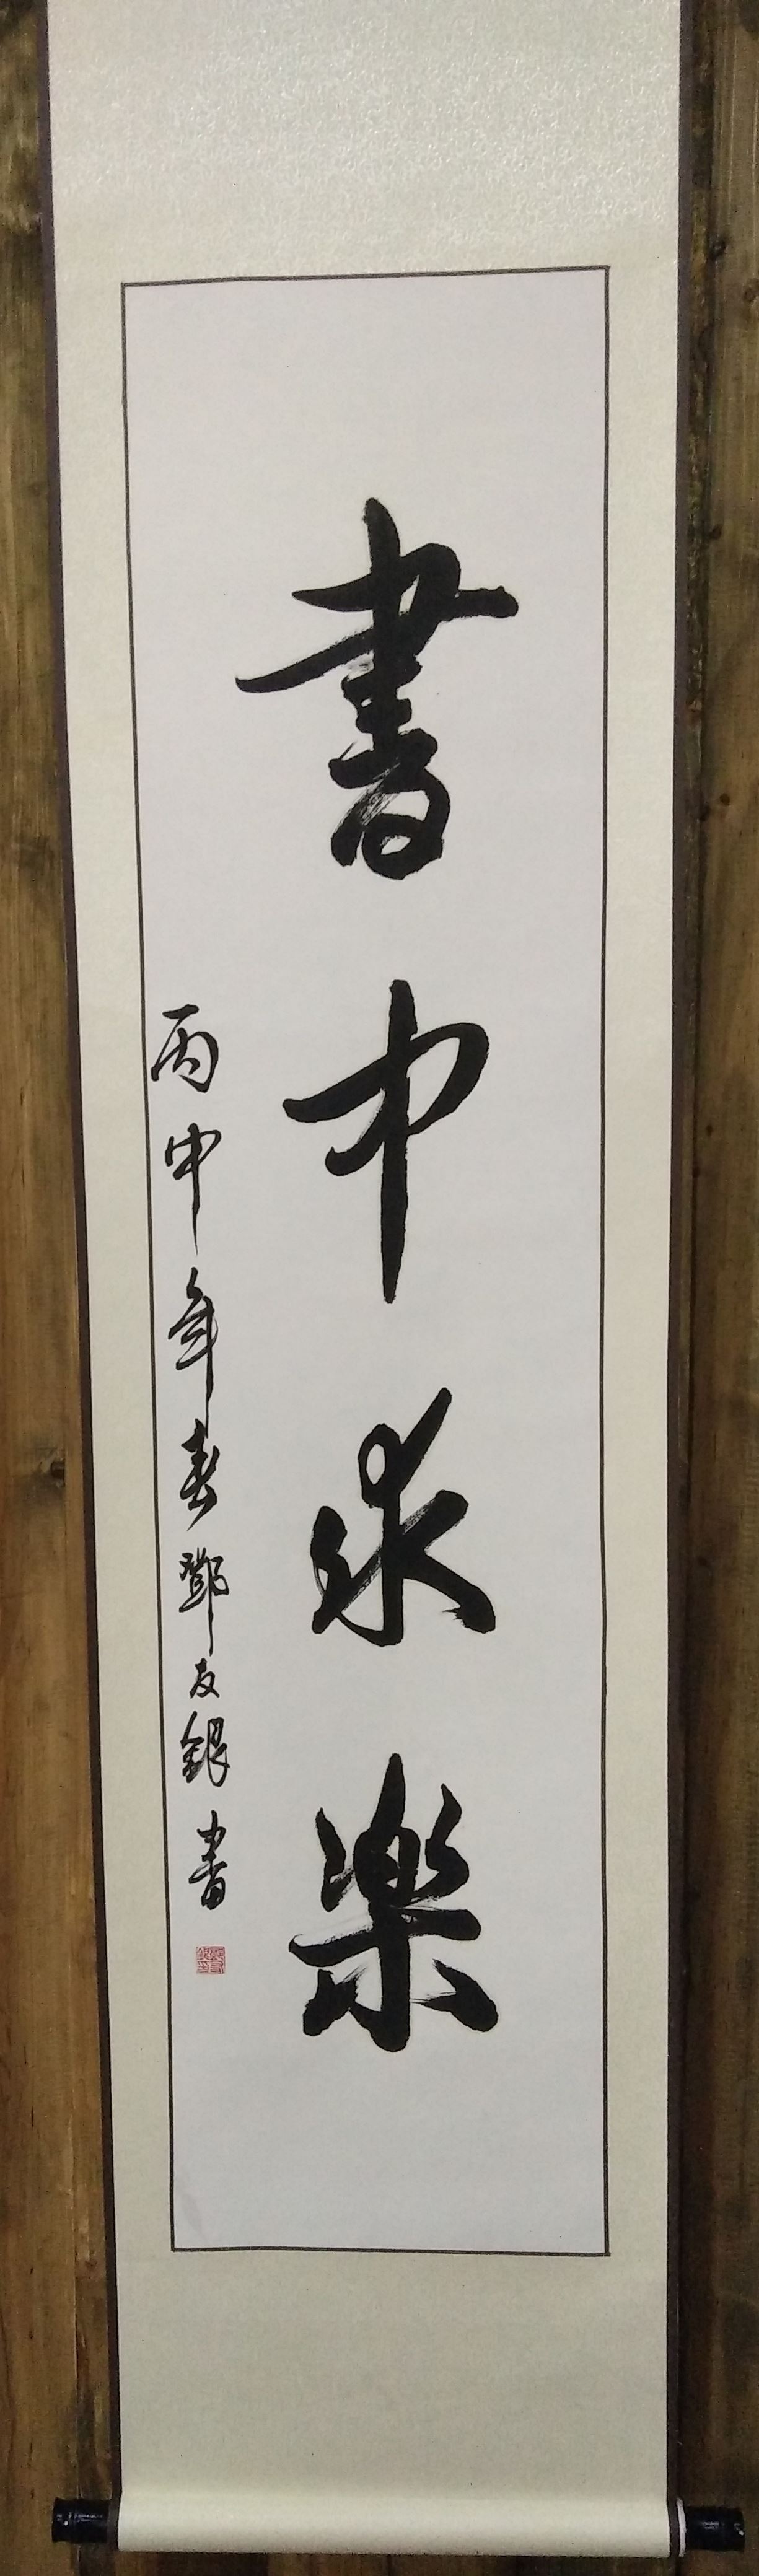 書中求樂
丙申年春鄧友銀書